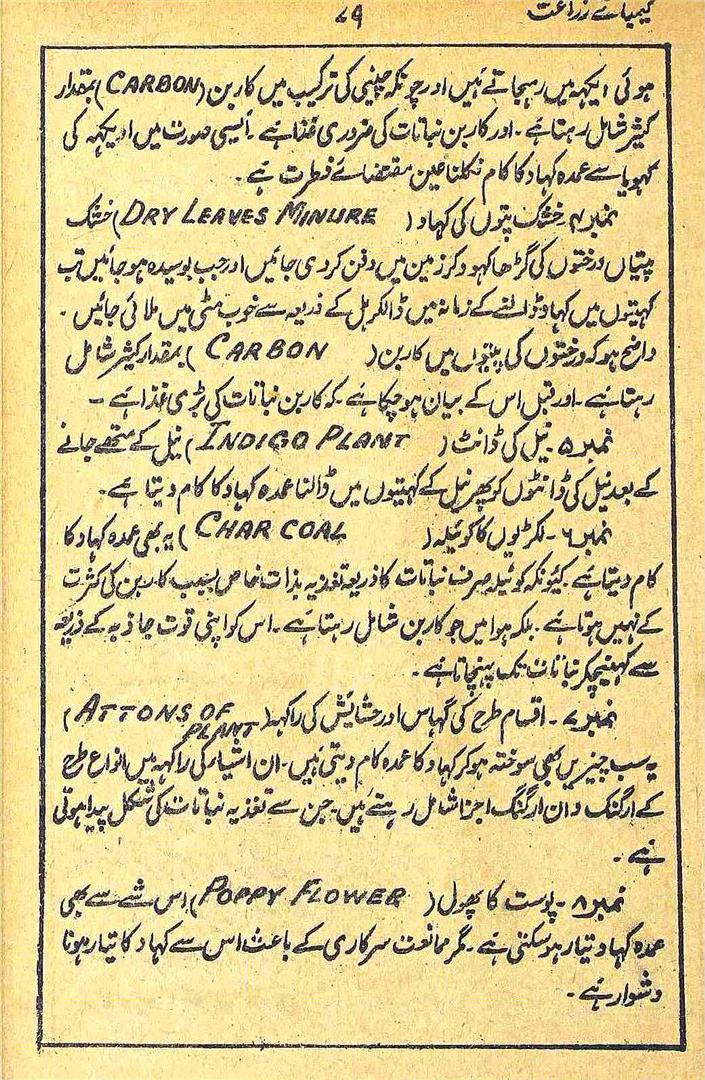 کیمیائے زراعت
۷۹
ہوئی ایکہہ میں رہجاتے ہیں اور چونکہ چینی کی ترکیب میں کاربن (CARBON) بمقدار
کثیر شامل رہتا ہے ۔ اور کاربن نباتات کی ضروری غذا ہے ۔ ایسی صورت میں اریکہہ کی
کہویا سے عمدہ کہاد کا کام نکلنا عین مقتضائے فطرت ہے ۔
نمبر۴ خشک پتوں کی کہاد ( DRY LEAVES MINURE ) خشک
پتیاں درختوں کی گڑھا کہود کر زمین میں دفن کر دی جائیں اور جب بوسیدہ ہو جائیں تب
کہیتوں میں کہاد ڈالنے کے زمانہ میں ڈالکر ہل کے ذریعہ سے خوب مٹی میں ملائی جائیں ۔
واضح ہو کہ درختوں کی پتیوں میں کاربن ( CARBON ) بمقدار کثیر شامل
رہتا ہے ۔ اور قبل اس کے بیان ہو چکا ہے ۔ کہ کاربن نباتات کی بڑی غذا ہے ۔
نمبر۵ ۔ نیل کی ڈانٹ ( INDIGO PLANT ) نیل کے متھے جانے
کے بعد نیل کی ڈانٹوں کو پھر نیل کے کہیتوں میں ڈالنا عمدہ کہاد کا کام دیتا ہے ۔
نمبر۶ ۔ لکڑیوں کا کوئیلہ ( CHAR COAL ) یہ بھی عمدہ کہاد کا
کام دیتا ہے ۔ کیونکہ کوئیلہ صرف نباتات کا ذریعہ تغذیہ بذات خاص بسبب کاربن کی کثرت
کے نہیں ہوتا ہے ۔ بلکہ ہوا میں جو کاربن شامل رہتا ہے ۔ اس کو اپنی قوت جاذبہ کے ذریعہ
سے کہینچکر نباتات تک پہنچاتا ہے ۔
نمبر۷ ۔ اقسام طرح کی گہاس اور حشایش کی راکہہ ( ATTONS OF PLANT )
یہ سب چیزیں بھی سوختہ ہو کر کہاد کا عمدہ کام دیتی ہیں ۔ ان اشیار کی راکہہ میں انواع طرح
کے ارگنگ و ان ارگنگ اجزا شامل رہتے ہیں ۔ جن سے تغذیہ نباتات کی شکل پیدا ہوتی
ہے ۔
نمبر۸ ۔ پوست کا پھول ( POPPY FLOWER ) اس شے سے بھی
عمدہ کہاد تیار ہو سکتی ہے ۔ مگر ممانعت سرکاری کے باعث اس سے کہاد کا تیار ہونا
دشوار ہے ۔